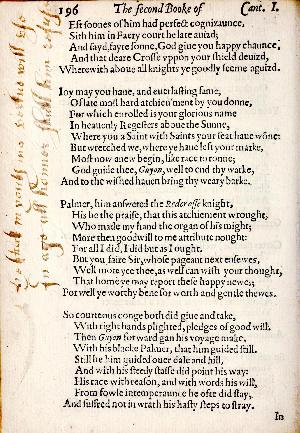 196 The second Booke of Cant. I.
Eftsoones of him had perfect cognizaunce,
Sith him in Faery court he late auizd;
And sayd, fayre sonne, God giue you happy chaunce:
And that deare Crosse vppon your shield deuizd,
Wherewith aboue all knights ye goodly seeme aguizd.
Ioy may you haue, and euerlasting fame,
Of late most hard atchieu'ment by you donne,
For which enrolled is your glorious name
In heauenly Regesters aboue the Sunne,
Where you a Saint with Saints your seat haue wonne:
But wretched we, where ye haue left your marke,
Must now anew begin, like race to ronne;
God guide thee, Guyon, well to end thy warke,
And to the wished hauen bring thy weary barke.
Palmer, him answered the Redcrosse knight,
His be the praise, that this atchieument wrought,
Who made my hand the organ of his might;
More then goodwill to me attribute nought:
For all I did, I did but as I ought.
But you faire Sir, whose pageant next ensewes,
Well mote yee thee, as well can wish your thought,
That home ye may report these happy newes;
For well ye worthy bene for worth and gentle thewes.
So courteous conge both did giue and take,
With right hands plighted, pledges of good will.
Then Guyon forward gan his voyage make,
With his blacke Palmer, that him guided still.
Still he him guided ouer dale and hill,
And with his steedy staffe did point his way:
His race with reason, and with words his will,
From fowle intemperaunce he ofte did stay,
And suffred not in wrath his hasty steps to stray.
In